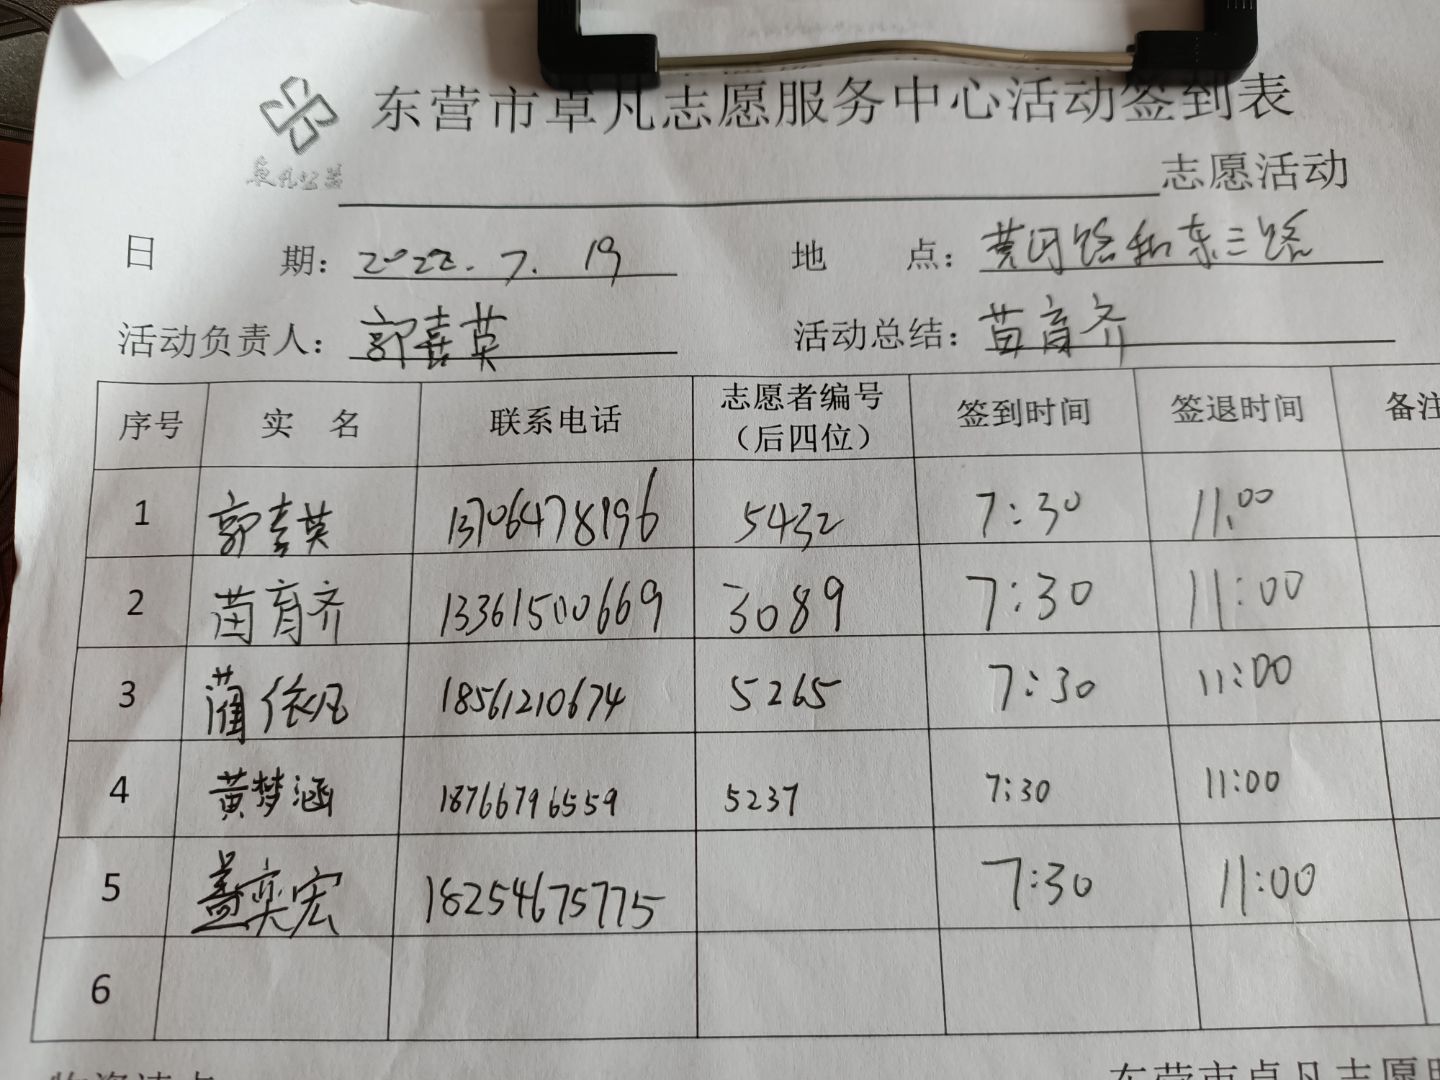 东营市卓凡志愿服务中心活动签到表
卓凡公益
志愿活动
日 期：2022.7.19 地 点：黄河路和东三路
活动负责人：郭喜英 活动总结：苗育齐
序号 实 名 联系电话 志愿者编号（后四位） 签到时间 签退时间 备注
1 郭喜英 13706478196 5432 7:30 11:00
2 苗育齐 13361500669 3089 7:30 11:00
3 蔺依凡 18561210674 5265 7:30 11:00
4 黄梦涵 18766796559 5237 7:30 11:00
5 盖奕宏 18254675775 7:30 11:00
6
东营市卓凡志愿服